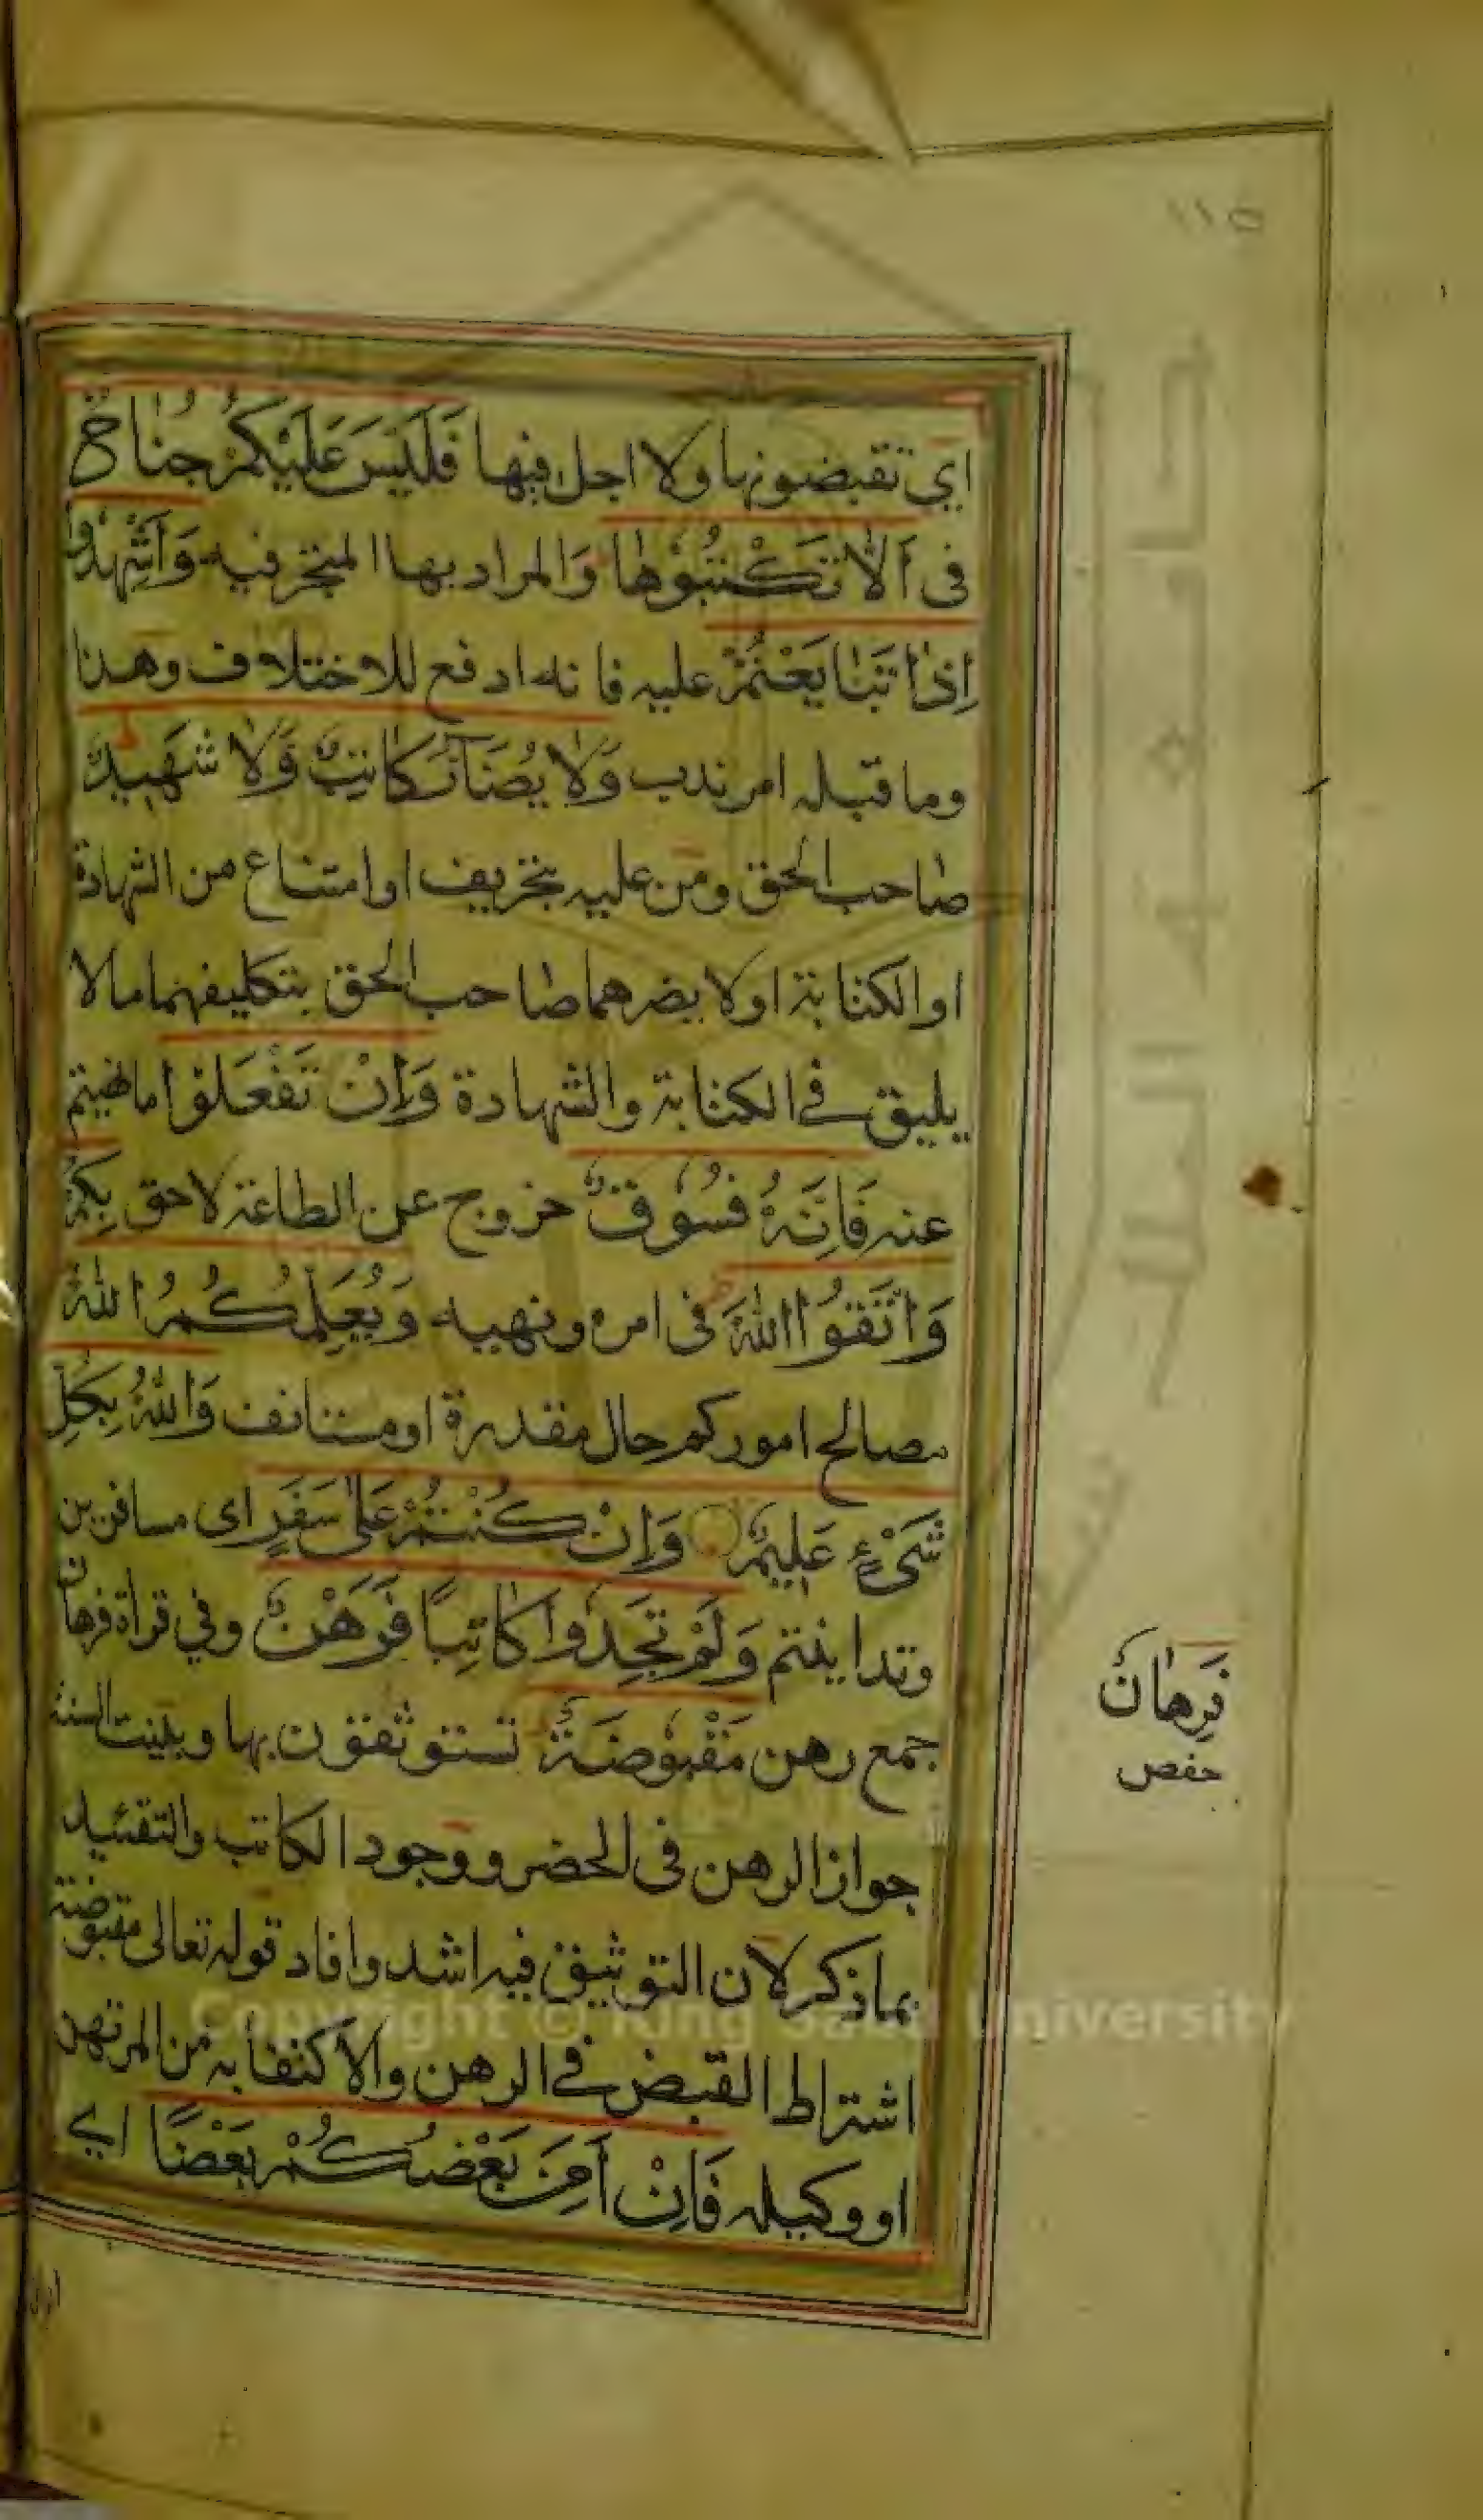 ١١٥
اي تقبضونها ولا اجل فيها فَلَيْسَ عَلَيْكُمْ جُنَاحٌ
فى اَلَّا تَكْتُبُوْهَا وَالمراد بها المتجر فيه وَاَشْهِدُوْا
اِذَا تَبَايَعْتُمْ عليه فانه ادفع للاختلاف وهذا
وما قبله امر ندب وَلَا يُضَآرَّ كَاتِبٌ وَّلَا شَهِيدٌ
صاحب الحق ومن عليه بتحريف او امتناع من الشهادة
او الكتابة او لا يضرهما صاحب الحق بتكليفهما ما لا
يليق في الكتابة والشهادة وَاِنْ تَفْعَلُوْا ما نهيتم
عنه فَاِنَّهٗ فُسُوْقٌۢ خروج عن الطاعة لاحق بِكُمْ
وَاتَّقُوا اللّٰهَ فى امره ونهيه وَيُعَلِّمُكُمُ اللّٰهُ
مصالح اموركم حال مقدرة او مستانف وَاللّٰهُ بِكُلِّ
شَىْءٍ عَلِيْمٌ وَاِنْ كُنْتُمْ عَلٰى سَفَرٍ اى مسافرين
وتداينتم وَلَمْ تَجِدُوْا كَاتِبًا فَرُهُنٌ وفي قراة فرهان
جمع رهن مَقْبُوْضَةٌ تستوثقون بها وبينت السنة
جواز الرهن فى الحضر ووجود الكاتب والتقئيد
بما ذكر لان التوثيق فيه اشد وافاد قوله تعالى مقبوضة
اشتراط القبض في الرهن والاكتفا به من المرتهن
او وكيله فَاِنْ اَمِنَ بَعْضُكُمْ بَعْضًا اي
فَرِهَانٌ
حفص
Copyright © King Saud University